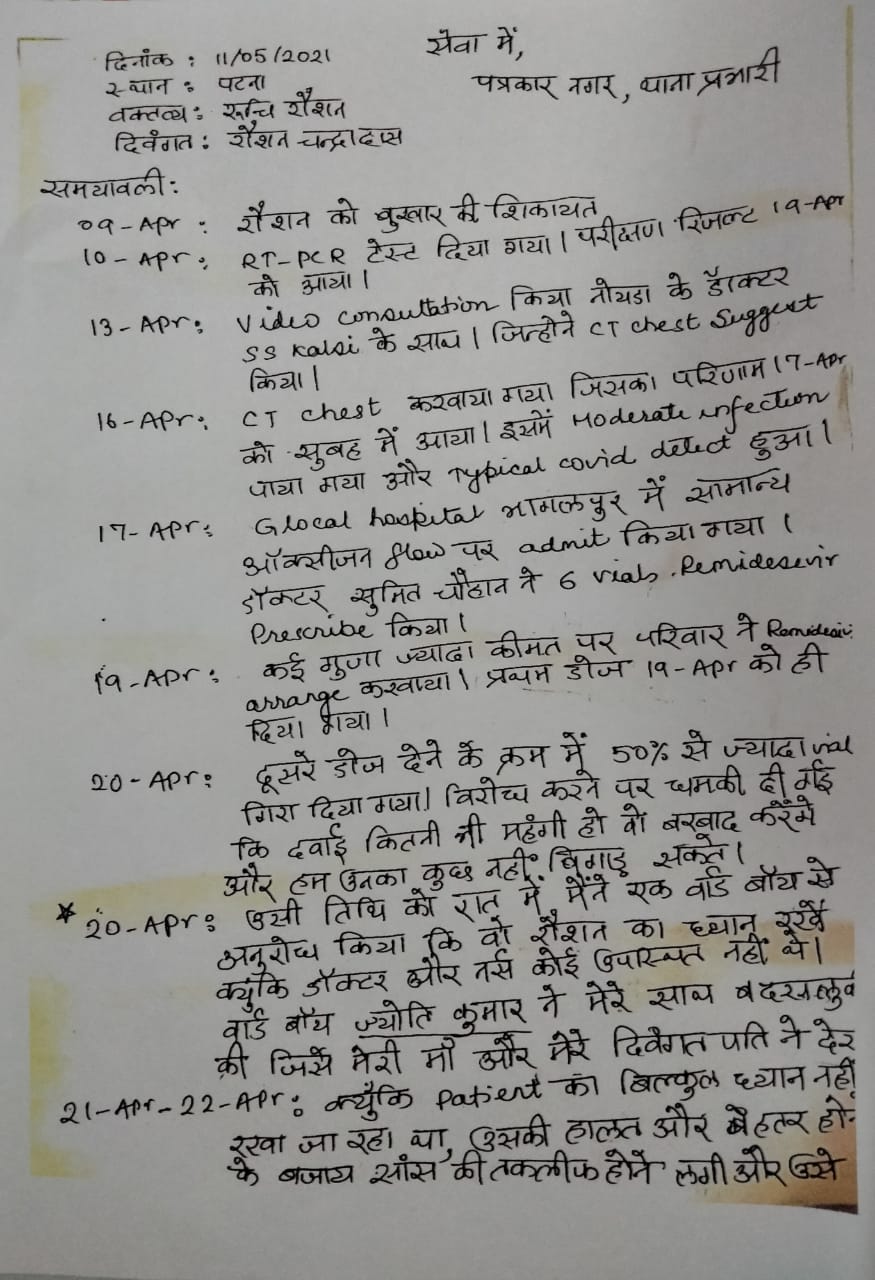 सेवा में,
पत्रकार नगर, थाना प्रभारी
दिनांक : 11/05/2021
स्थान : पटना
वक्तव्य : रूचि रौशन
दिवंगत : रौशन चन्द्रा दास
समयावली :
09-Apr : रौशन को बुखार की शिकायत
10-Apr : RT-PCR टेस्ट दिया गया। परीक्षण रिजल्ट 19-Apr
को आया।
13-Apr : Video consultation किया नोयडा के डॉक्टर
SS Kalsi के साथ। जिन्होने CT chest Suggest
किया।
16-Apr : CT chest करवाया गया जिसका परिणाम 17-Apr
को सुबह में आया। इसमें Moderate infection
पाया गया और Typical covid detect हुआ।
17-Apr : Glocal hospital भागलपुर में सामान्य
ऑक्सीजन flow पर admit किया गया।
डॉक्टर सुमित चौहान ने 6 vials Remidesevir
Prescribe किया।
19-Apr : कई गुणा ज्यादा कीमत पर परिवार ने
arrange करवाया। प्रथम डोज 19-Apr को ही
दिया गया।
20-Apr : दूसरे डोज देने के क्रम में 50% से ज्यादा vial
गिरा दिया गया। विरोध करने पर धमकी दी गई
कि दवाई कितनी भी महंगी हो वो बरबाद करेंगे
और हम उनका कुछ नहीं बिगाड़ सकते।
* 20-Apr : उसी तिथि को रात में, मैंने एक वार्ड बॉय से
अनुरोध किया कि वो रौशन का ध्यान रखें
क्युंकि डॉक्टर और नर्स कोई उपस्थित नहीं थे।
वार्ड बॉय ज्योति कुमार ने मेरे साथ बदसलुकी
की जिसे मेरी माँ और मेरे दिवंगत पति ने देखा
21-Apr-22-Apr : क्युँकि Patient का बिल्कुल ध्यान नहीं
रखा जा रहा था, उसकी हालत और बेहतर होने
के बजाय सांस की तकलीफ होने लगी और उसे